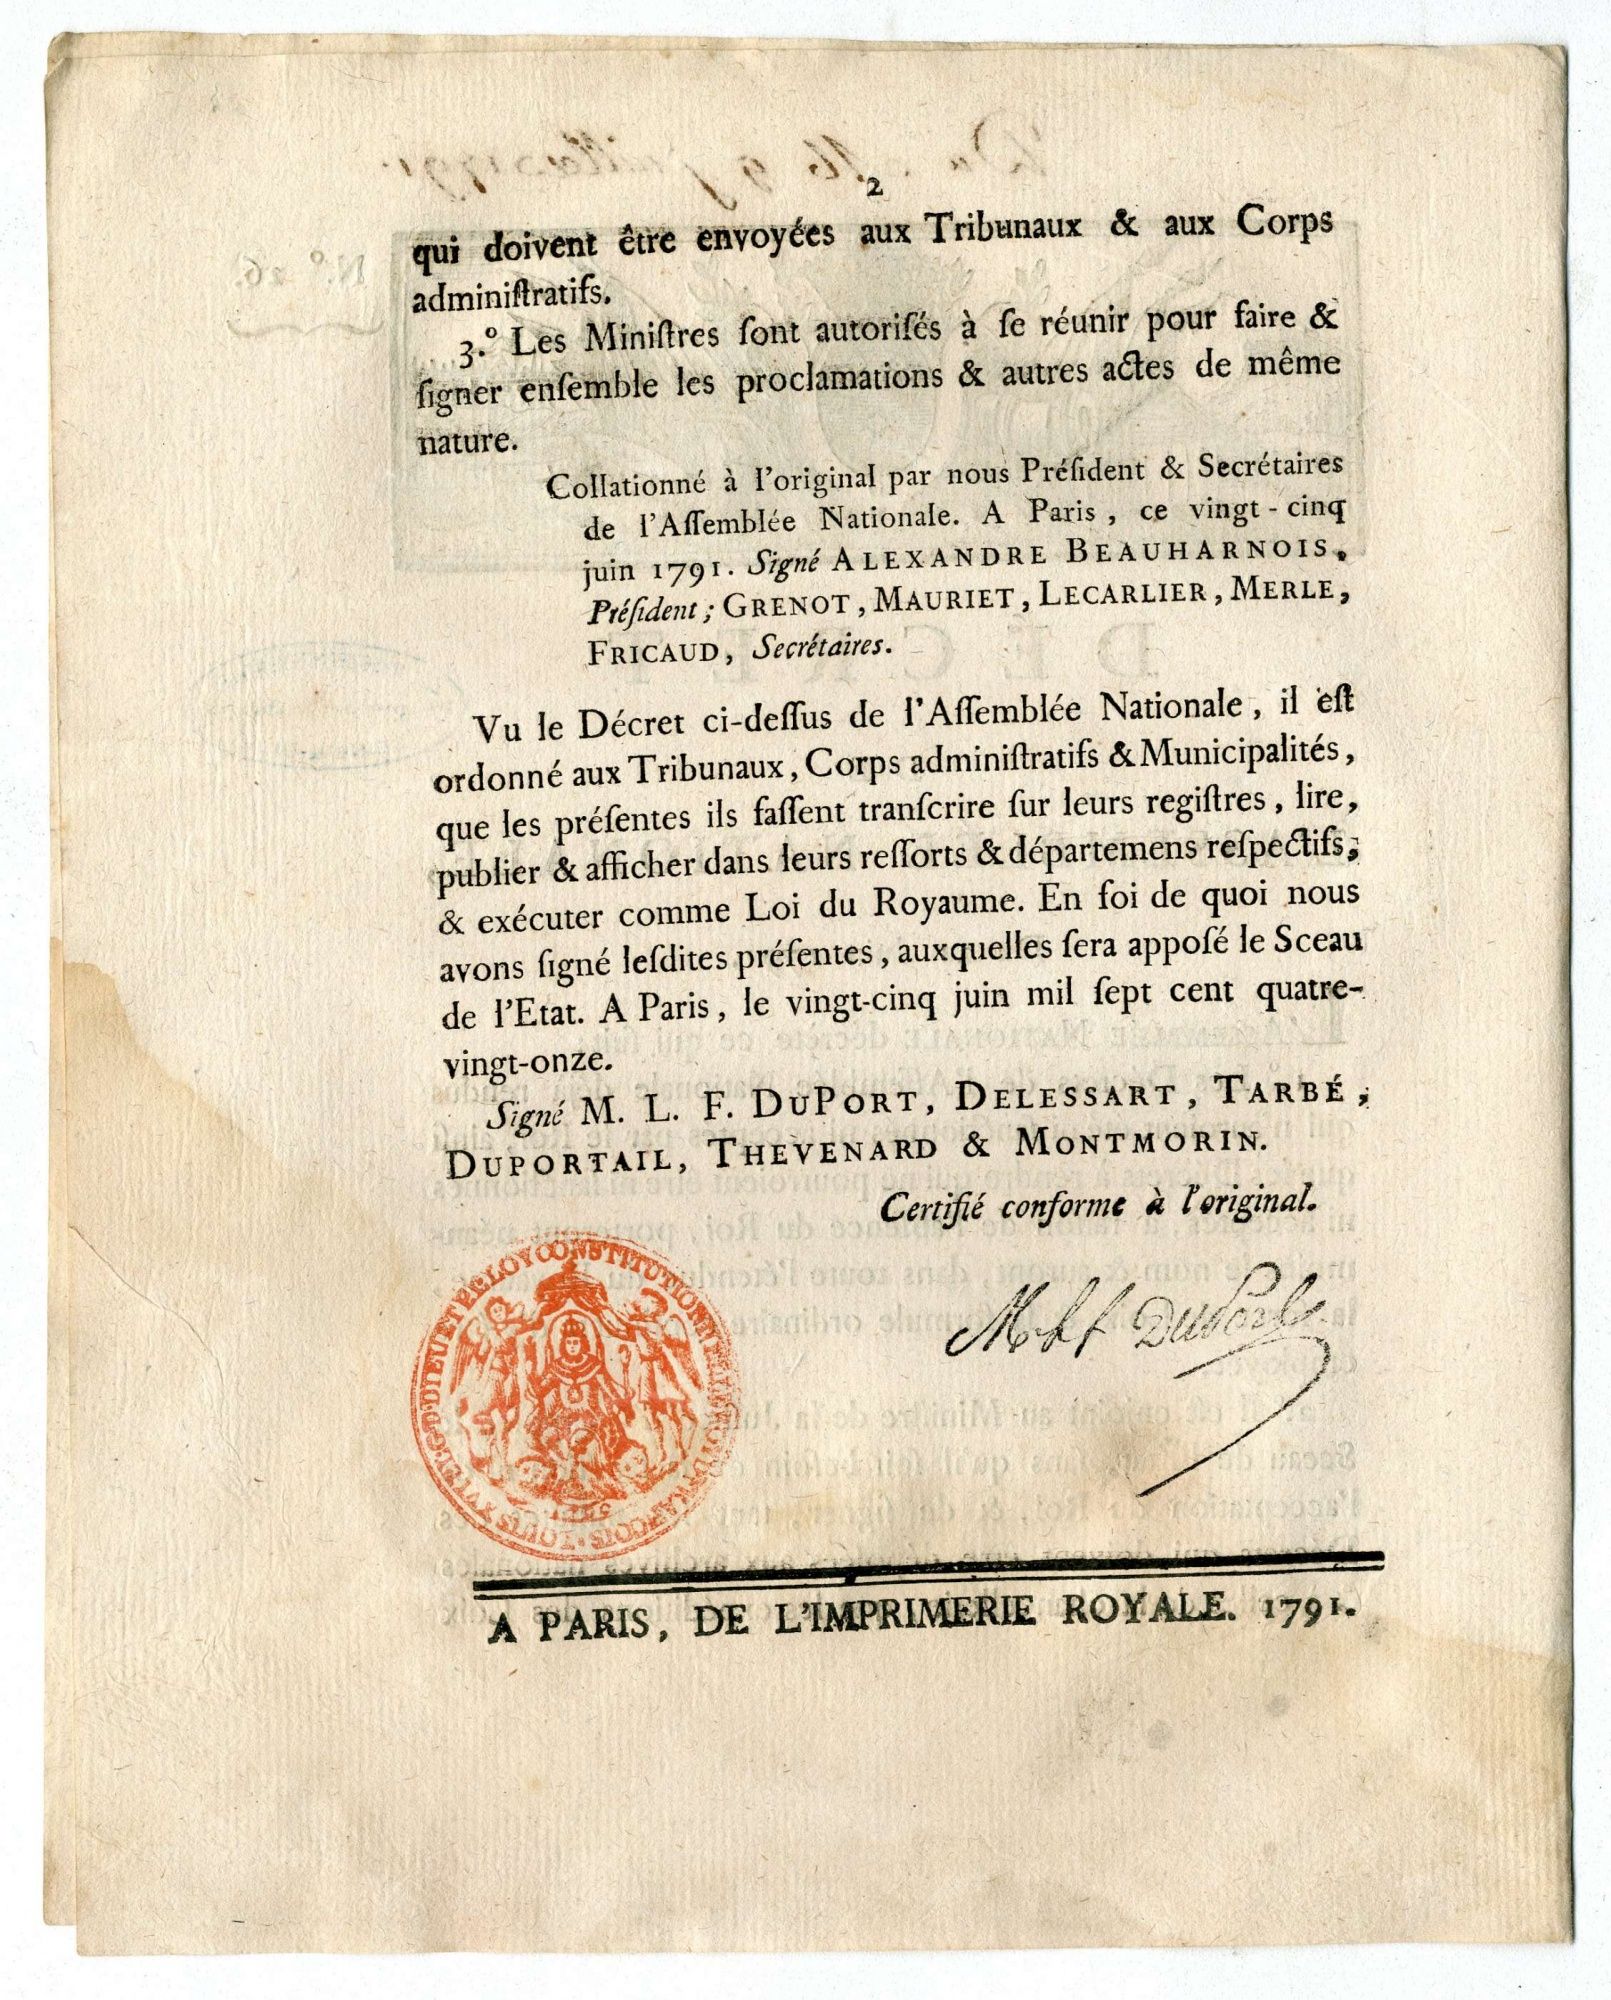 2
qui doivent être envoyées aux Tribunaux & aux Corps
adminiſtratifs.
3.º Les Miniſtres ſont autoriſés à ſe réunir pour faire &
ſigner enſemble les proclamations & autres actes de même
nature.
Collationné à l'original par nous Préſident & Secrétaires
de l'Aſſemblée Nationale. A Paris, ce vingt-cinq
juin 1791. Signé ALEXANDRE BEAUHARNOIS,
Préſident; GRENOT, MAURIET, LECARLIER, MERLE,
FRICAUD, Secrétaires.
Vu le Décret ci-deſſus de l'Aſſemblée Nationale, il eſt
ordonné aux Tribunaux, Corps adminiſtratifs & Municipalités,
que les préſentes ils faſſent tranſcrire ſur leurs regiſtres, lire,
publier & afficher dans leurs reſſorts & départemens reſpectifs,
& exécuter comme Loi du Royaume. En foi de quoi nous
avons ſigné leſdites préſentes, auxquelles ſera appoſé le Sceau
de l'Etat. A Paris, le vingt-cinq juin mil ſept cent quatre-
vingt-onze.
Signé M. L. F. DUPORT, DELESSART, TARBÉ,
DUPORTAIL, THEVENARD & MONTMORIN.
Certifié conforme à l'original.
LOUIS XVI PAR LA G. D. DIEU ET P. LA LOY CONSTITUTIONNELLE ROI DES FRANCOIS
DuPort
A PARIS, DE L'IMPRIMERIE ROYALE. 1791.